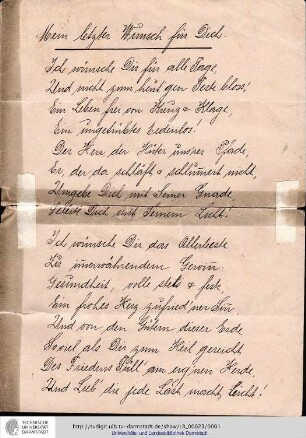 Mein letzter Wunsch für Dich.
Ich wünsche Dir für alle Tage,
Und nicht zum heut'gen Fest bloss,
Ein Leben frei von Kreuz & Klage,
Ein ungetrübtes Erdenlos.
Der Herr der Hüter unsrer Pfade,
Er, der da schläft & schlummert nicht,
Umgebe Dich mit Seiner Gnade
Geleite Dich mit Seinem Licht!
Ich wünsche Dir das Allerbeste
Zu immerwährendem Gewinn:
Gesundheit, volle stets & feste
Ein frohes Herz zufried'ner Sinn
Und von den Gütern dieser Erde
Soviel als Dir zum Heil gereicht
Des Friedens Füll' am eig'nen Herde,
Und Lieb' die jede Last macht leicht!
TECHNISCHE
UNIVERSITÄT
DARMSTADT
http://tudigit.ulb.tu-darmstadt.de/show/
Universitäts- und Landesbibliothek Darmstadt